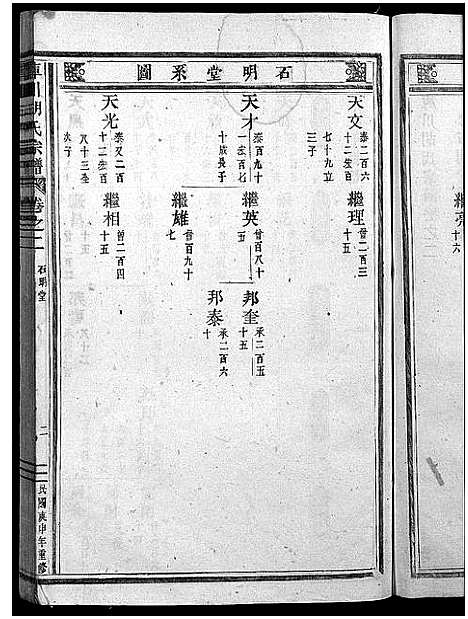 石明堂系圖
天文 泰二百六十二叁百七十九立三子
繼理 晉二百三十五
天才 泰百九十一叁百七十成長子
繼英 晉百八十五
邦奎 承二百五十五
邦泰 承二百六十
繼雄 晉百九十七
天光 泰又二百十二叁百八十三叁次子
繼相 晉二百四十五
胡氏宗譜 卷之一
石明堂
二
民國庚申年重修
繼亮
十六